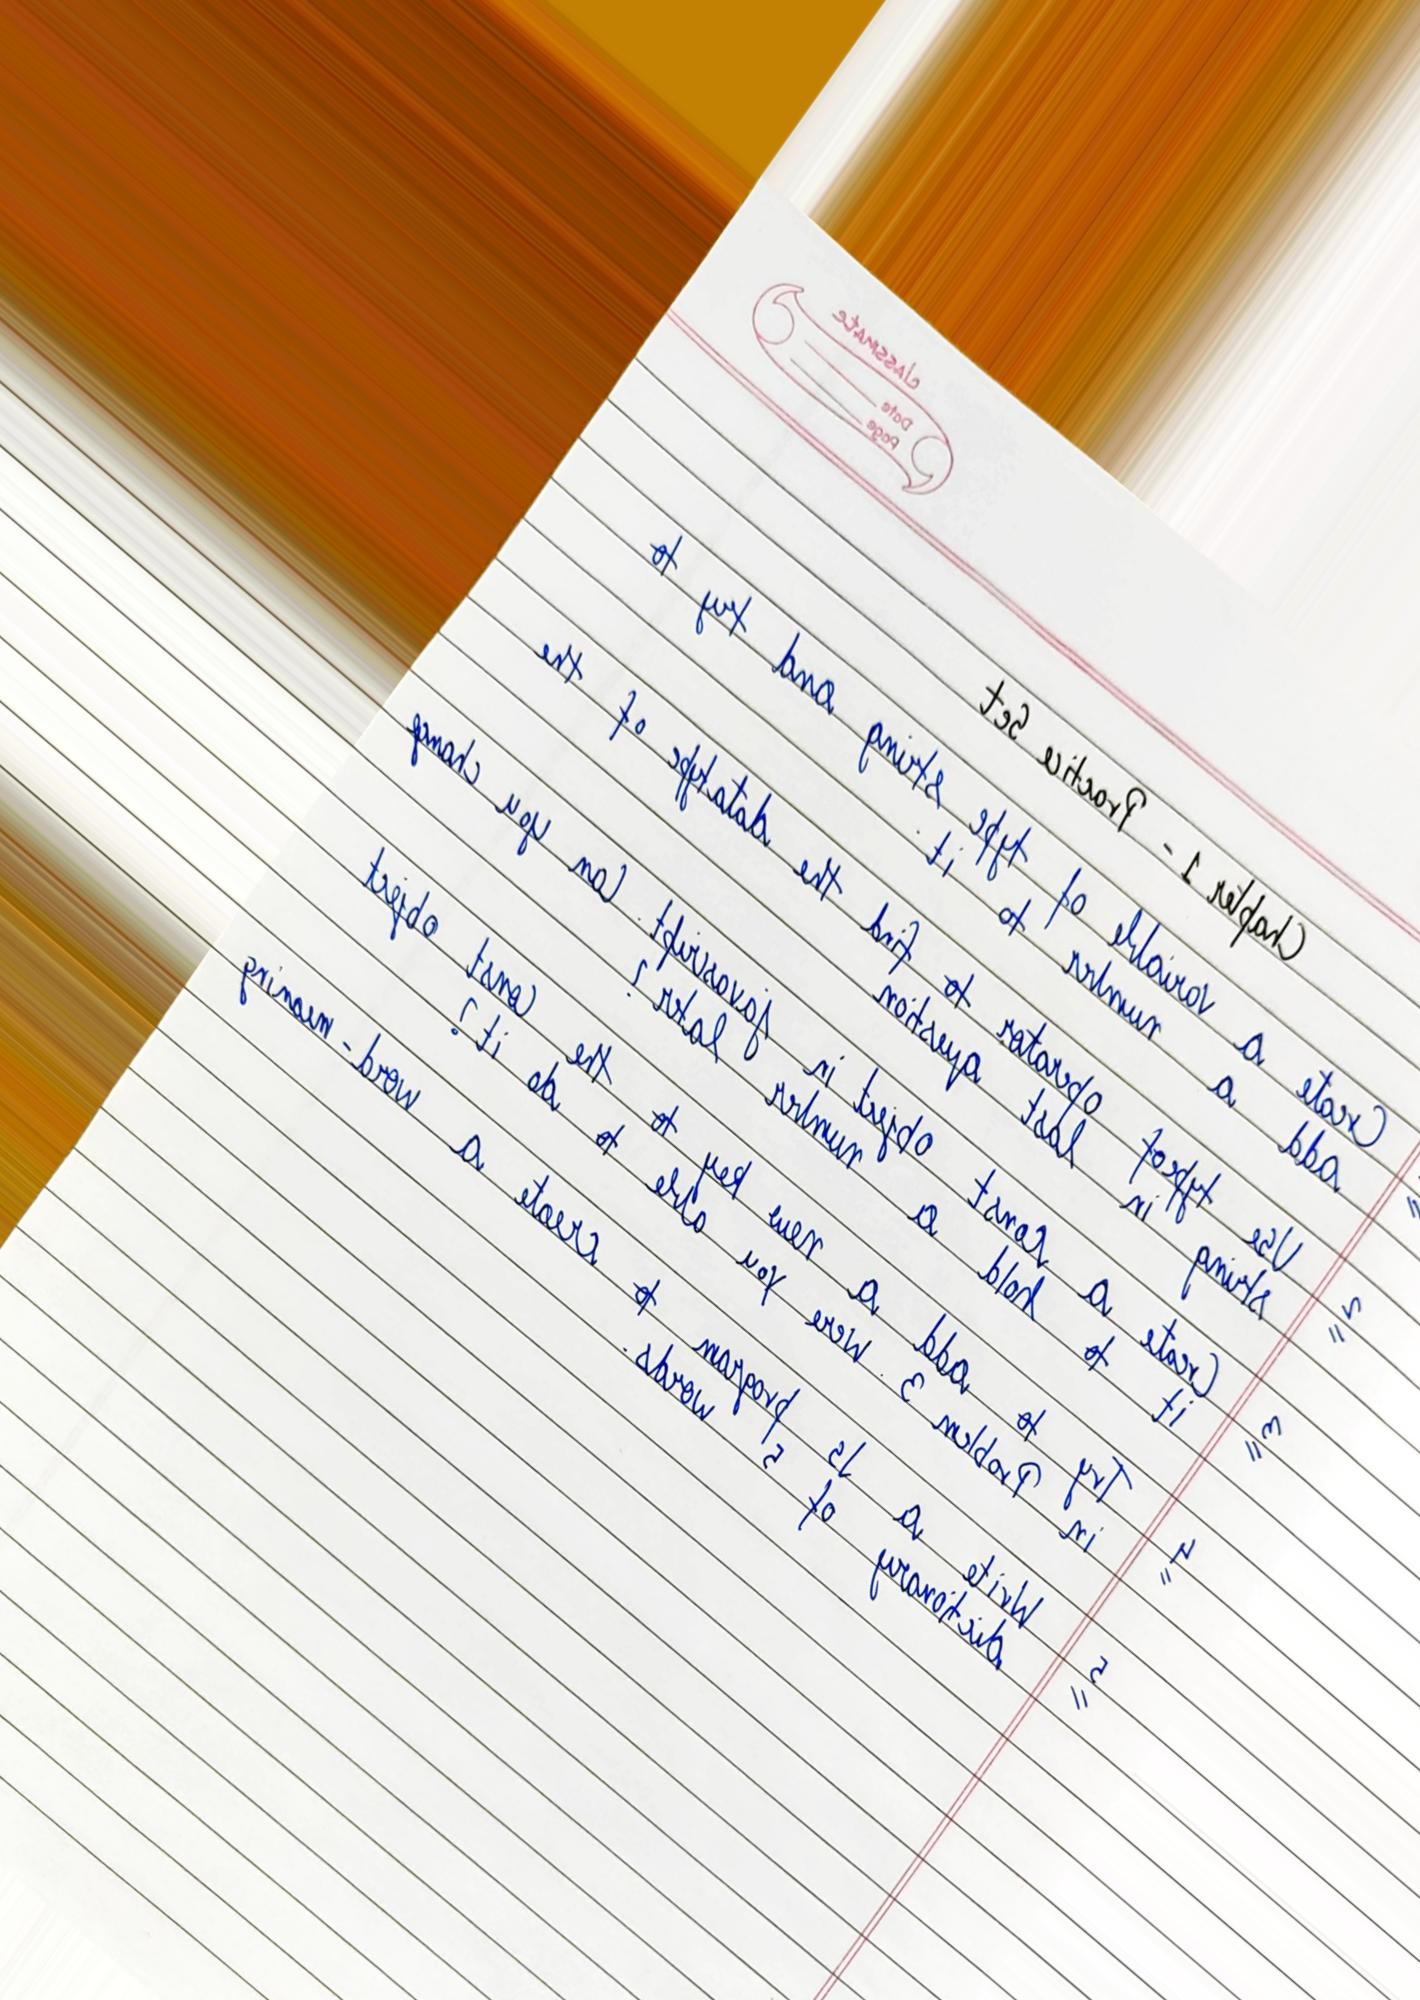 classmate
Date
Page
Chapter 1 - Practice Set
Create a variable of type string and try to
add a number to it.
2 Use typeof operator to find the datatype of the
string in last question
3 Create a const object in javascript. Can you change
it to hold a number later?
4 Try to add a new key to the const object
in Problem 3. Were you able to do it?
5 Write a JS program to create a word-meaning
dictionary of 5 words.